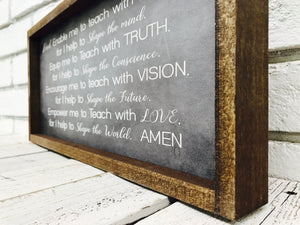 Lord Enable me to teach with
for I help to Shape the mind.
Equip me to Teach with TRUTH.
for I help to Shape the Conscience.
Encourage me to Teach with VISION.
for I help to Shape the Future.
Empower me to Teach with LOVE.
for I help to Shape the World. AMEN